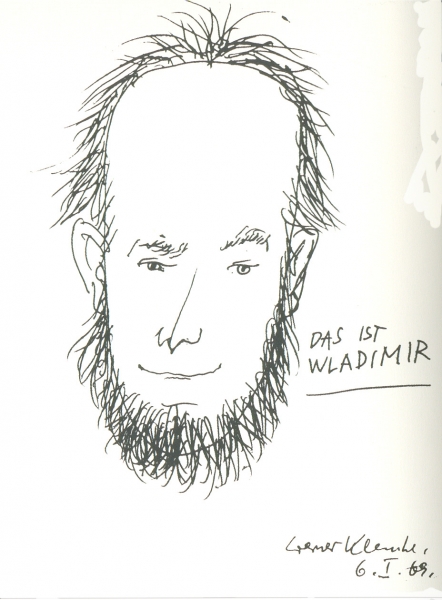 DAS IST
WLADIMIR
Werner Klemke,
6. I. 69.